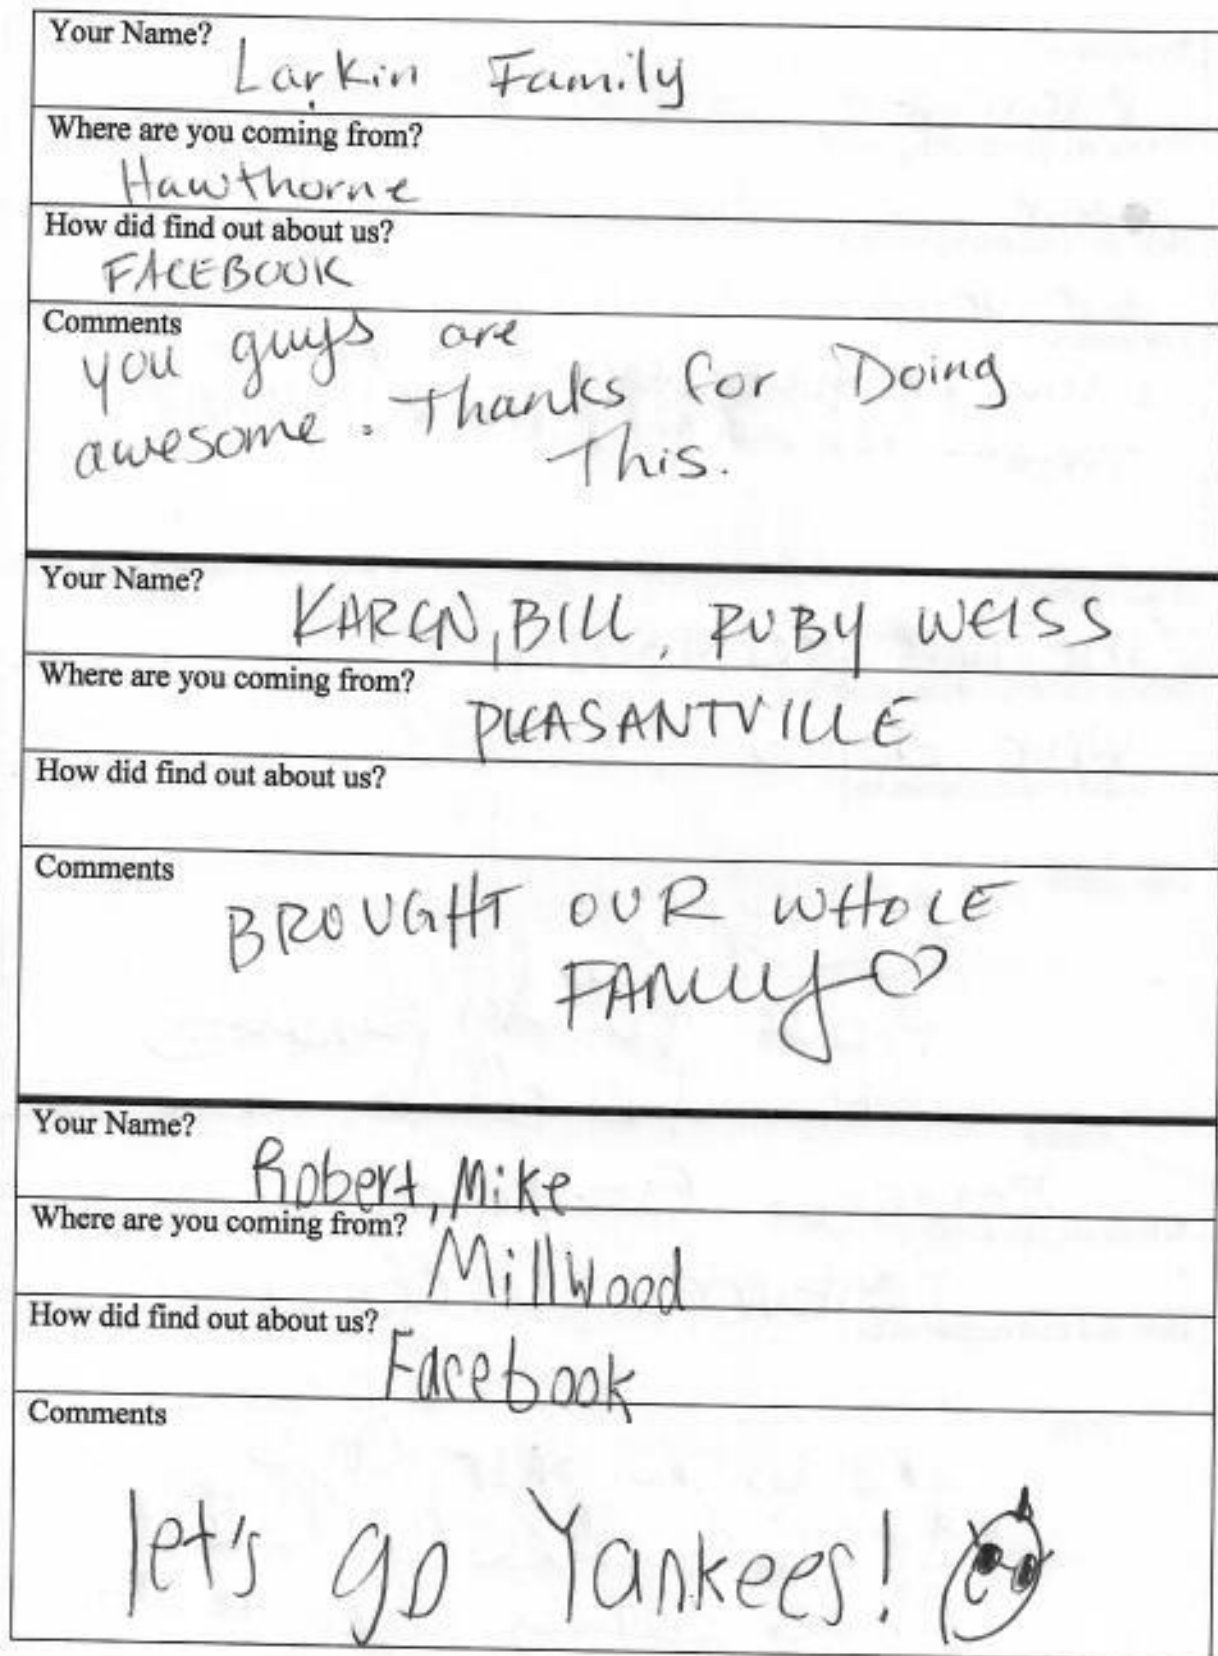 Your Name?
Larkin Family
Where are you coming from?
Hawthorne
How did find out about us?
FACEBOOK
Comments
you guys are
awesome. Thanks for Doing
This.
Your Name?
KAREN, BILL, RUBY WEISS
Where are you coming from?
PLEASANTVILLE
How did find out about us?
Comments
BROUGHT OUR WHOLE
FAMILY
Your Name?
Robert, Mike
Where are you coming from?
Millwood
How did find out about us?
Facebook
Comments
let's go Yankees!